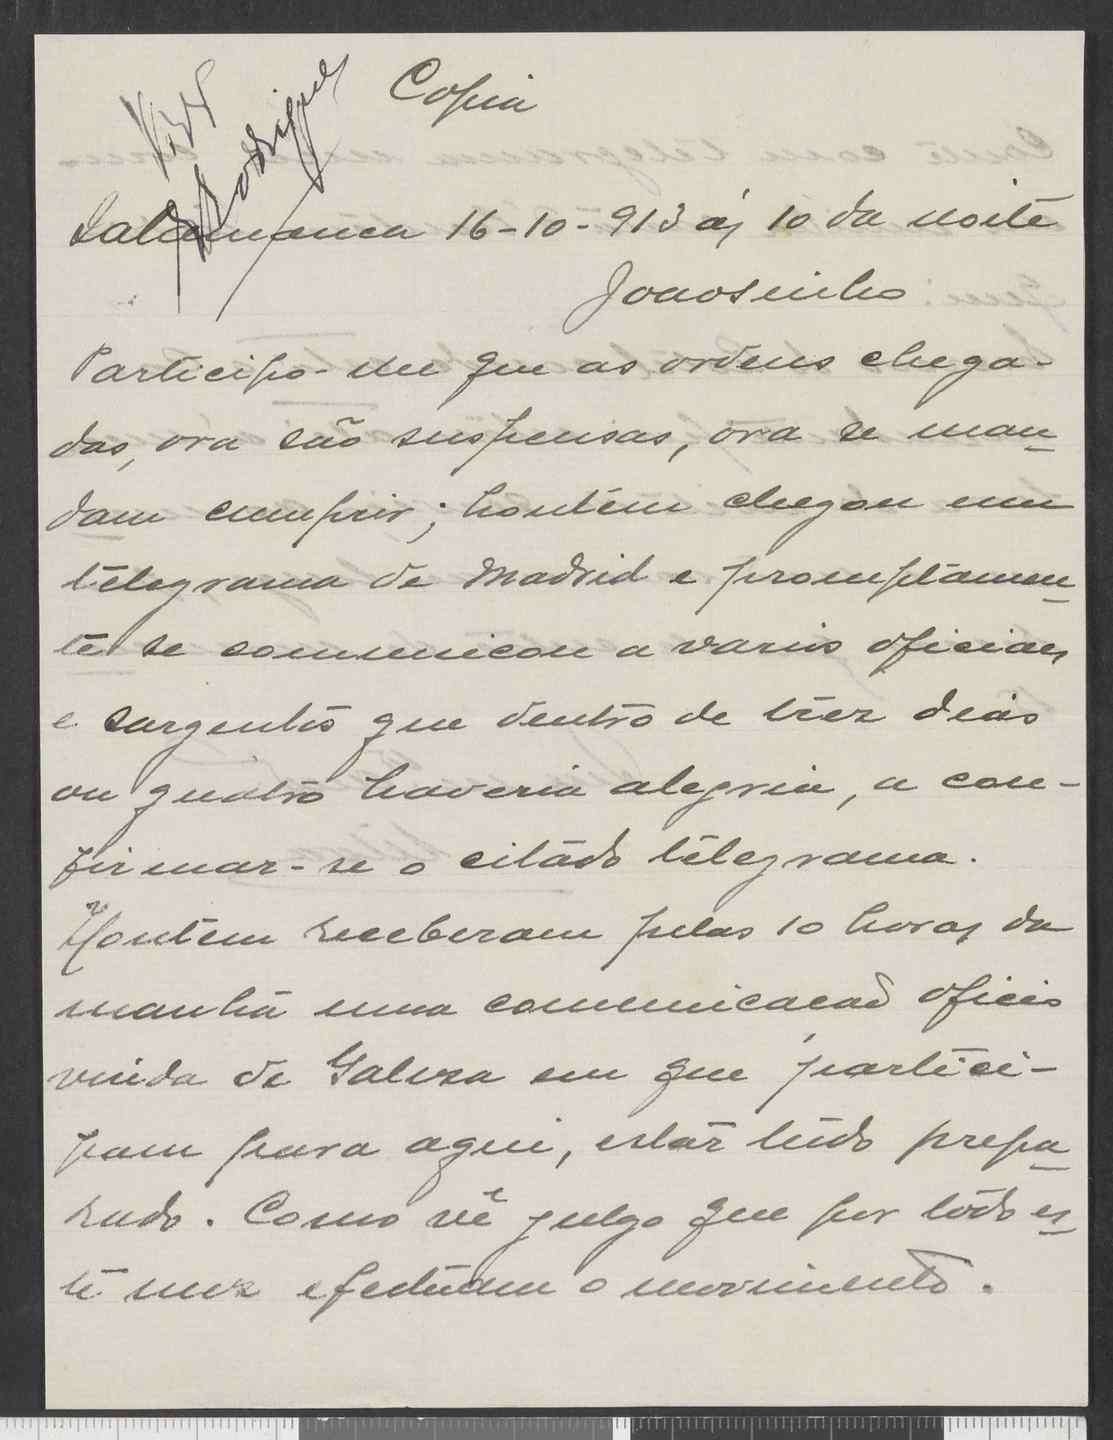 Copia
Visto
Rodrigues
Salamanca 16-10-913 ás 10 da noite
Joaosinho
Participo-me que as ordens chega-
das, ora são suspensas, ora se man-
dam cumprir; hontem chegou um
telegrama de Madrid e promptamen-
te se comunicou a varios oficiaes
e sargentos que dentro de trez dias
ou quatro haveria alegria, a con-
firmar-se o citado telegrama.
Hontem receberam pelas 10 horas da
manhã uma comunicacaõ oficio
vinda de Galiza em que partici-
pam para aqui, estar tudo prepa-
rado. Como vê julgo que por todo es-
te mez efectuam o movimento.